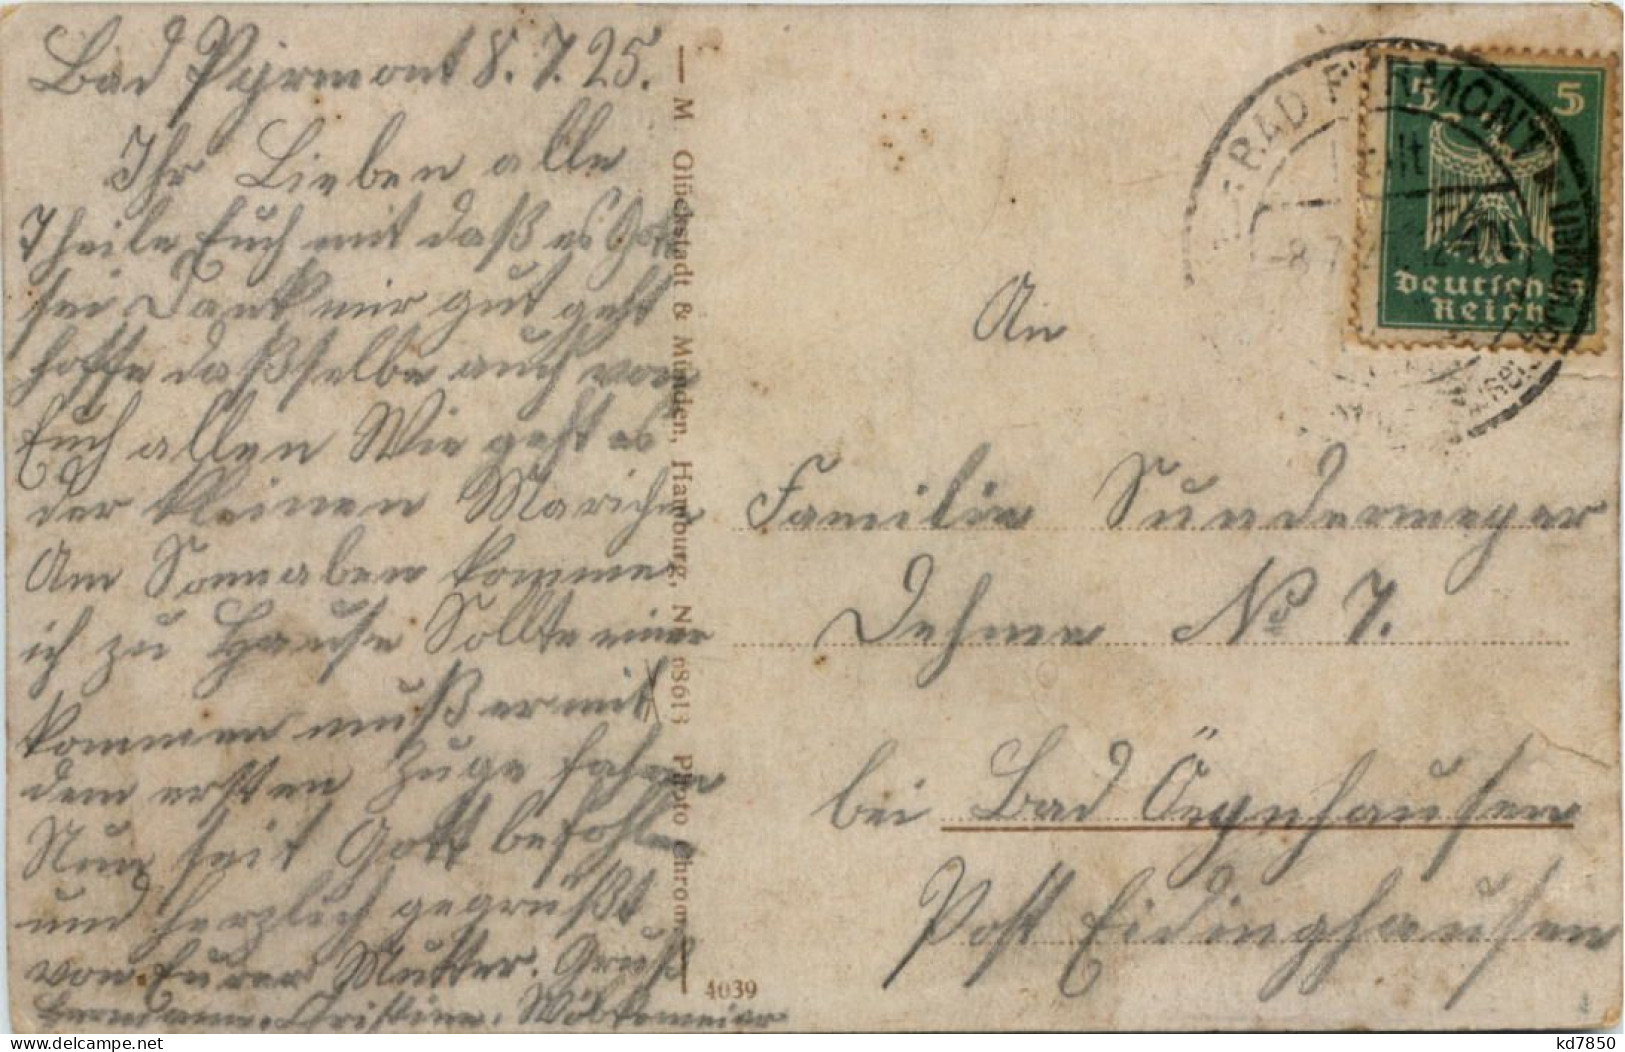 Bad Pyrmont 8.7.25.
Ihr Lieben alle
Theile Euch mit daß es Gott
sei Dank mir gut geht
hoffe daßselbe auch von
Euch allen Wie geht es
der kleinen Mariche
Am Sonnaben komme
ich zu Hause Sollte einer
kommen muß er mit
dem ersten Zuge fahren
Nun seit Gott befohlen
und herzlich gegrüßt
von Eurer Mutter. Gruß
Christine.
M. Glückstadt & Münden, Hamburg, 68613 Photo Chrom
4039
BAD PYRMONT
-8.7
5 5
Deutsches
Reich
An
Familie Sundermeyer
Dehme No 7.
bei Bad Öeynhausen
Post Eidinghausen
kd7850